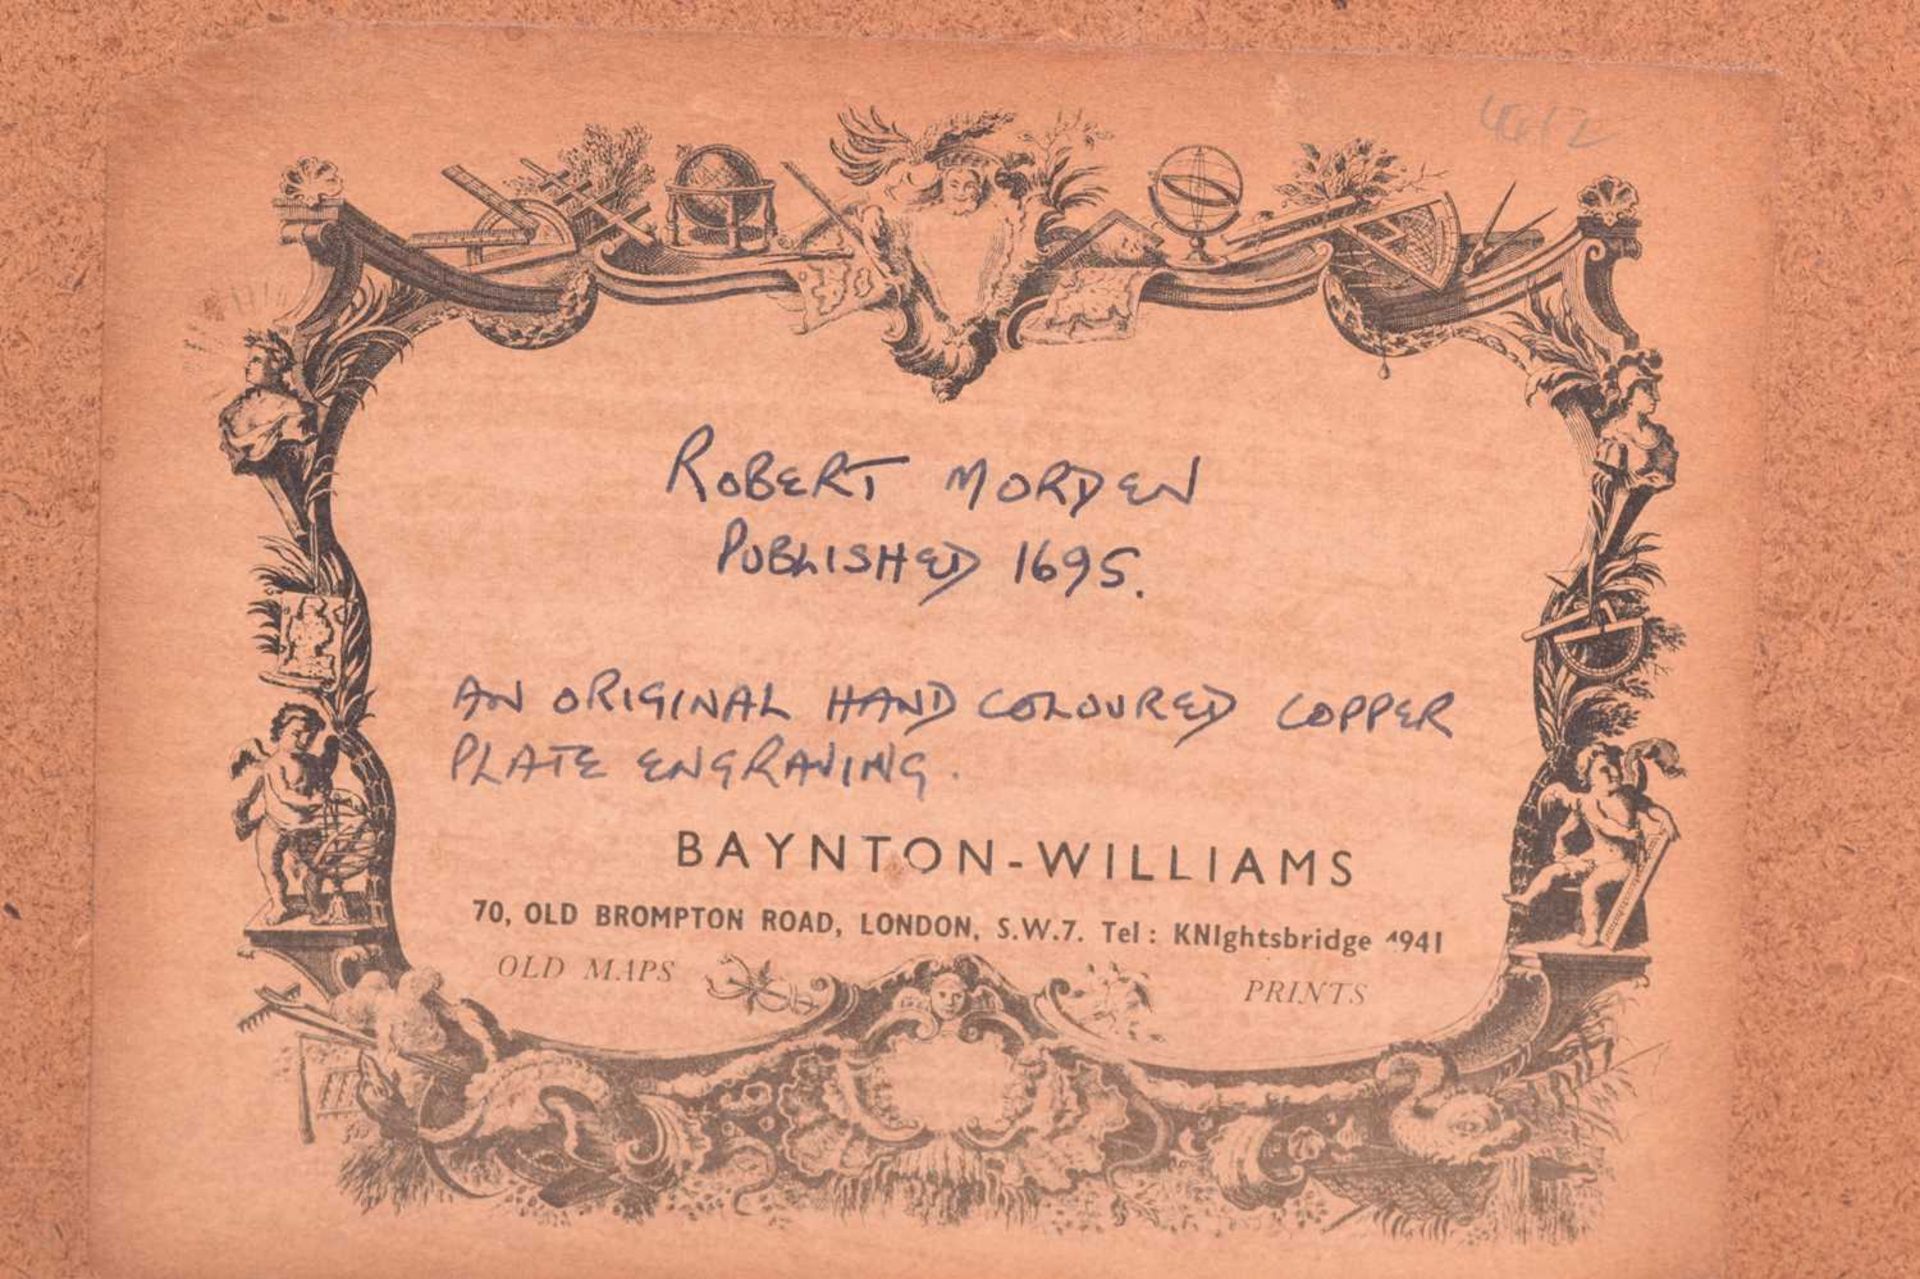 ROBERT MORDEN
PUBLISHED 1695.
AN ORIGINAL HAND COLOURED COPPER
PLATE ENGRAVING.
BAYNTON-WILLIAMS
70, OLD BROMPTON ROAD, LONDON, S.W.7. Tel: KNIghtsbridge 4941
OLD MAPS PRINTS